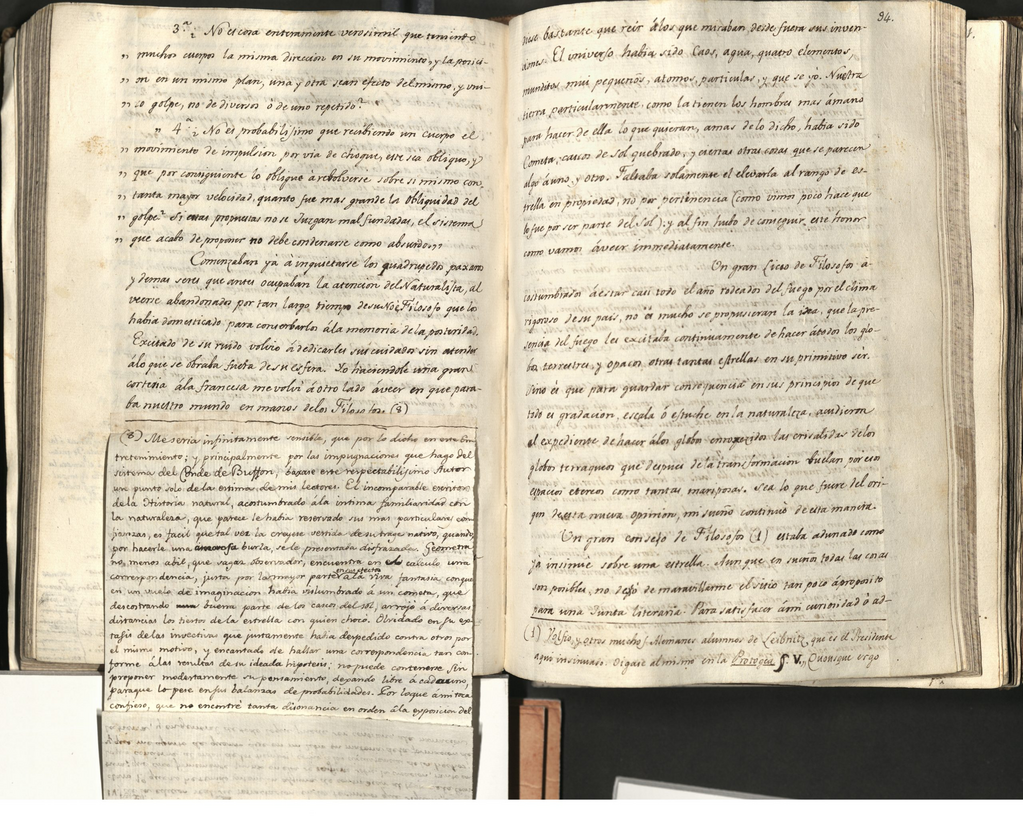 3.ª ¿No es cosa enteramente verosimil que teniendo
„ muchos cuerpos la misma direccion en su movimiento, y la posici-
„ on en un mismo plan, una y otra sean efecto del mismo, y uni-
„ co golpe, no de diversos ò de uno repetido?
„ 4.ª ¿No es probabilisimo que recibiendo un cuerpo el
„ movimiento de impulsion por via de choque, este sea obliquo, y
„ que por consiguiente lo oblique à rebolverse sobre si mismo con
„ tanta mayor velocidad, quanto fue mas grande la obliquidad del
„ golpe? Si estas propuestas no se Juzgan mal fundadas, el sistema
„ que acabo de proponer no debe condenarse como absurdo„
Comenzaban yà à inquietarse los quadrupedos paxaros
y demas seres que antes ocupaban la atencion del Naturalista, al
veerse abandonados por tan largo tiempo de su Noè Filosofo que los
habia domesticado para conserbarlos àla memoria de la posteridad.
Excitado de su ruido volvio à dedicarles sus cuidados sin atender
àlo que se obraba fuera de su esfera. Yo hiciendole una gran
cortesia àla francesa me volvi à otro lado àveer en que para-
ba nuestro mundo en manos delos Filosofos. (8)
(8) Me seria infinitamente sensible, que por lo dicho en este En-
tretenimiento; y principalmente por las impugnaciones que hago del
sistema del Conde de Buffon, baxase este respectabilisimo Autor
un punto solo de la estima de mis lectores. El incomparable escritor
de la Historia natural, acostumbrado àla intima familiaridad con
la naturaleza, que parece le habia reservado sus mas particulares con-
fianzas, es facil que tal vez la creyese vestida de su traje nativo, quando
por hacerle una burla, se le presentaba disfrazada. Geometra
no, menos abil, que sagaz observador, encuentra en el calculo una
correspondencia, justa por la mayor parte, àla viva fantasia con que
en un vuelo de imaginacion habia vislumbrado à un cometa, que
descostrando buena parte de los cascos del sol, arrojò à diversas
distancias los tiestos de la estrella con quien choco. Olvidado en su ex-
tasis de las invectivas que justamente habia despedido contra otros por
el mismo motivo, y encantado de hallar una correspondencia tan con-
forme à las resultas de su ideada hipotesi; no puede contenerse sin
proponer modestamente su pensamiento, dexando libre à cada uno,
para que lo pese en sus balanzas de probabilidades. Por lo que à mi toca
confieso, que no encontrè tanta disonancia en orden àla exposicion del
94.
nuse bastante que reir àlos que miraban desde fuera sus inven-
ciones. El universo habia sido Caos, agua, quatro elementos,
munditos mui pequeños, atomos, particulas, y que se yo. Nuestra
tierra particularmente, como la tienen los hombres mas àmano
para hacer de ella lo que quieran, amas de lo dicho, habia sido
Cometa, cascos de Sol quebrado, y ciertas otras cosas que se parecen
algo à uno, y otro. Faltaba solamente el elevarla al rango de es-
trella en propiedad, no por pertinencia (como vimos poco hace que
lo fue por ser parte del Sol); y al fin hubo de conseguir este honor
como vamos àveer immediatamente.
Un gran Liceo de Filosofos à-
costumbrados àestar casi todo el año rodeados del fuego por el clima
rigoroso de su pais, no es mucho se propusieran la idea, que la pre-
sencia del fuego les excitaba continuamente de hacer àtodos los glo-
bos terrestres, y opacos otras tantas estrellas en su primitivo ser.
Sino es que para guardar consequencia en sus principios de que
todo es gradacion, escala ò estuche en la naturaleza, acudieron
al expediente de hacer àlos globos enroxecidos las crisalidas delos
globos terraqueos que despues de la transformacion buelan por esos
espacios etereos como tantas mariposas. Sea lo que fuere del ori-
gen de esta nueva opinion, mi sueño continuò de esta manera.
Un gran consejo de Filosofos (1) estaba adunado como
ya insinue sobre una estrella. Aunque en sueños todas las cosas
son posibles, no dexo de maravillarme el sitio tan poco àproposito
para una Junta literaria. Para satisfacer à mi curiosidad ò ad-
(1) Volfio, y otros muchos Alemanes alumnos de Leibnitz, que es el Presidente
aqui insinuado. Oigase al mismo en la Protogea §. V. „ Quousque ergo